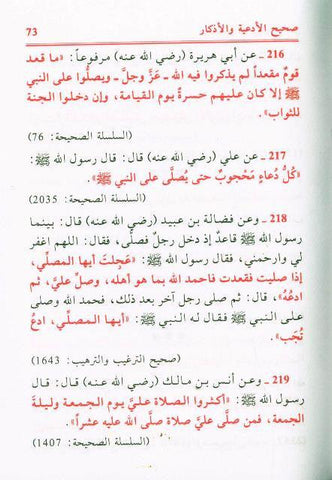 صحيح الأدعية والأذكار
73
216 ـ عن أبي هريرة (رضي الله عنه) مرفوعاً: «ما قعد
قومٌ مقعداً لم يذكروا فيه الله ـ عَزَّ وجلَّ ـ ويصلُّوا على النبي
ﷺ إلا كان عليهم حسرةً يوم القيامة، وإن دخلوا الجنة
للثواب».
(السلسلة الصحيحة: 76)
217 ـ عن علي (رضي الله عنه) قال: قال رسول الله ﷺ:
«كُلُّ دُعاءٍ مَحْجوبٌ حتى يُصلَّى على النبيِّ ﷺ».
(السلسلة الصحيحة: 2035)
218 ـ وعن فضالة بن عبيد (رضي الله عنه) قال: بينما
رسول الله ﷺ قاعدٌ إذ دخل رجلٌ فصلَّى، فقال: اللهم اغفر
لي وارحمني، فقال رسول الله ﷺ: «عَجِلتَ أيها المصلِّي،
إذا صليت فقعدت فاحمد الله بما هو أهله، وصلِّ عليَّ، ثم
ادعُهُ»، قال: ثم صلى رجل آخر بعد ذلك، فحمد الله وصلى
على النبي ﷺ فقال له النبي ﷺ: «أيها المصلِّي، ادعُ
تُجَب».
(صحيح الترغيب والترهيب: 1643)
219 ـ وعن أنس بن مالك (رضي الله عنه) قال: قال
رسول الله ﷺ: «أكثروا الصلاة عليَّ يوم الجمعة وليلة
الجمعة، فمن صلَّى عليَّ صلاة صلَّى الله عليه عشراً».
(السلسلة الصحيحة: 1407)